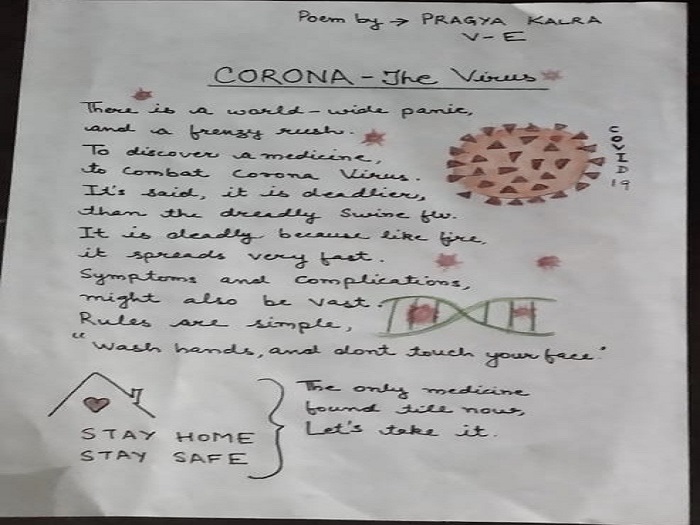 Poem by → PRAGYA KALRA
V-E
CORONA - The Virus
There is a world-wide panic,
and a frenzy rush.
To discover a medicine,
to combat Corona Virus.
It's said, it is deadlier,
than the dreadly Swine flu.
It is deadly because like fire,
it spreads very fast.
Symptoms and complications,
might also be vast.
Rules are simple,
"Wash hands, and dont touch your face"
COVID 19
STAY HOME
STAY SAFE
The only medicine
found till now,
Let's take it.